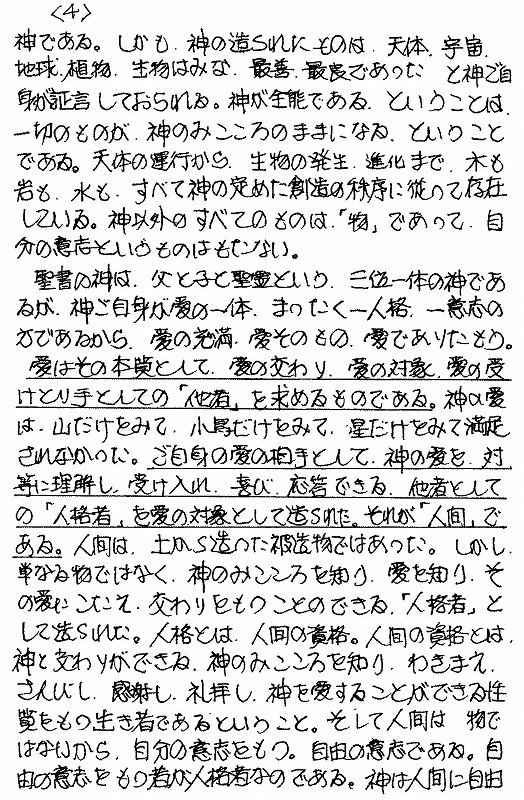 <4>
神である。しかも、神の造られたものは、天体、宇宙、
地球、植物、生物はみな、最善、最良であった と神ご自
身が証言しておられる。神が全能である、ということは、
一切のものが、神のみこころのままになる、ということ
である。天体の運行から、生物の発生、進化まで、木も
岩も、水も、すべて神の定めた創造の秩序に従って存在
している。神以外のすべてのものは、「物」であって、自
分の意志というものはもたない。
聖書の神は、父と子と聖霊という、三位一体の神であ
るが、神ご自身が愛の一体、まったく一人格、一意志の
方であるから、愛の充満、愛そのもの、愛でありたもう。
愛はその本質として、愛の交わり、愛の対象、愛の受
けとり手としての「他者」を求めるものである。神の愛
は、山だけをみて、小鳥だけをみて、星だけをみて満足
されなかった。ご自身の愛の相手として、神の愛を、対
等に理解し、受け入れ、喜び、応答できる、他者として
の「人格者」を愛の対象として造られた。それが「人間」で
ある。人間は、土から造った被造物ではあった。しかし、
単なる物ではなく、神のみこころを知り、愛を知り、そ
の愛にこたえ、交わりをもつことのできる、「人格者」と
して造られた。人格とは、人間の資格。人間の資格とは、
神と交わりができる、神のみこころを知り、わきまえ、
さんびし、感謝し、礼拝し、神を愛することができる性
質をもつ生き者であるということ。そして人間は 物で
はないから、自分の意志をもつ。自由の意志である。自
由の意志をもつ者が人格者なのである。神は人間に自由